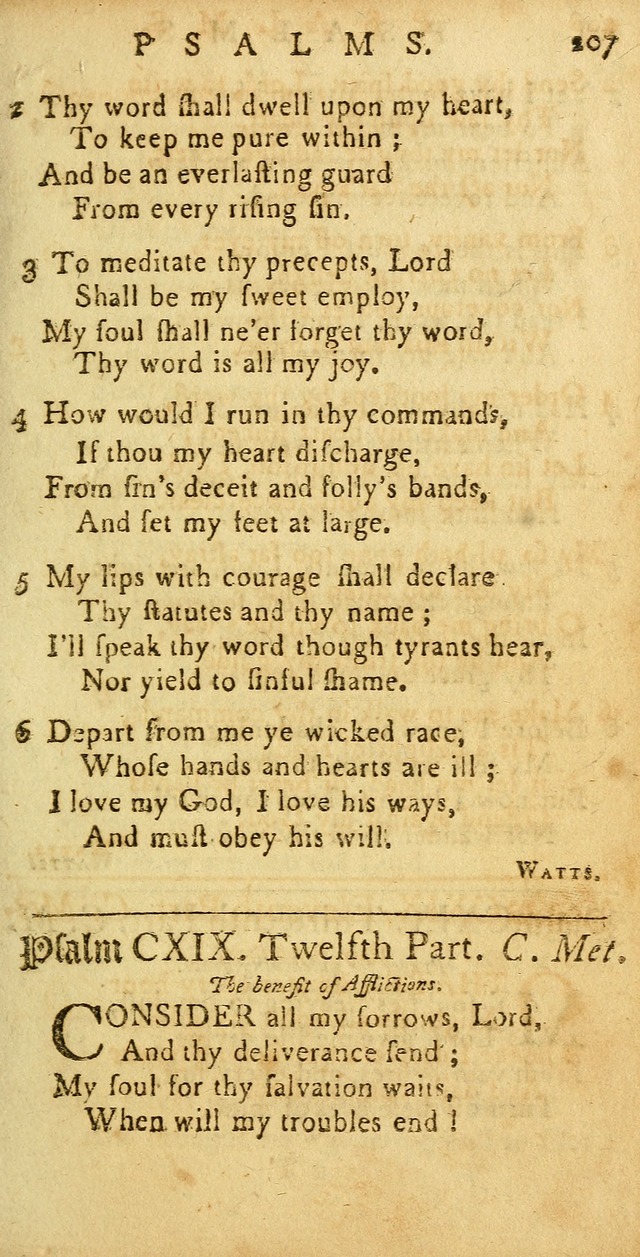 PSALMS. 207
2 Thy word ſhall dwell upon my heart,
To keep me pure within ;
And be an everlaſting guard
From every riſing ſin.
3 To meditate thy precepts, Lord
Shall be my ſweet employ,
My ſoul ſhall ne'er forget thy word,
Thy word is all my joy.
4 How would I run in thy commands,
If thou my heart diſcharge,
From ſin's deceit and folly's bands,
And ſet my feet at large.
5 My lips with courage ſhall declare
Thy ſtatutes and thy name ;
I'll ſpeak thy word though tyrants hear,
Nor yield to ſinful ſhame.
6 Depart from me ye wicked race,
Whoſe hands and hearts are ill ;
I love my God, I love his ways,
And muſt obey his will.
WATTS.
Pſalm CXIX. Twelfth Part. C. Met.
The benefit of Afflictions.
CONSIDER all my ſorrows, Lord,
And thy deliverance ſend ;
My ſoul for thy ſalvation waits,
When will my troubles end !